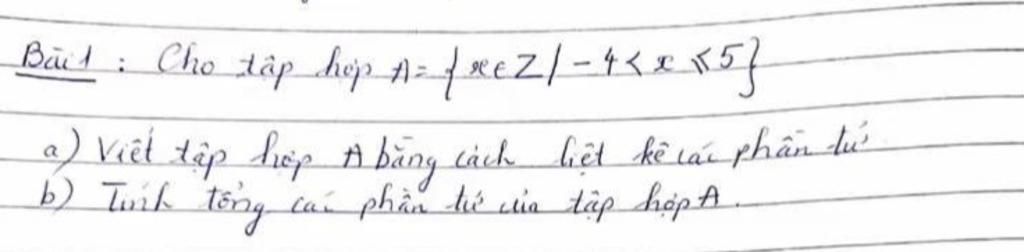 Bài 1 : Cho tập hợp A = { x ∈ Z / - 4 < x ⩽ 5 }
a) Viết tập hợp A bằng cách liệt kê các phần tử
b) Tính tổng các phần tử của tập hợp A .